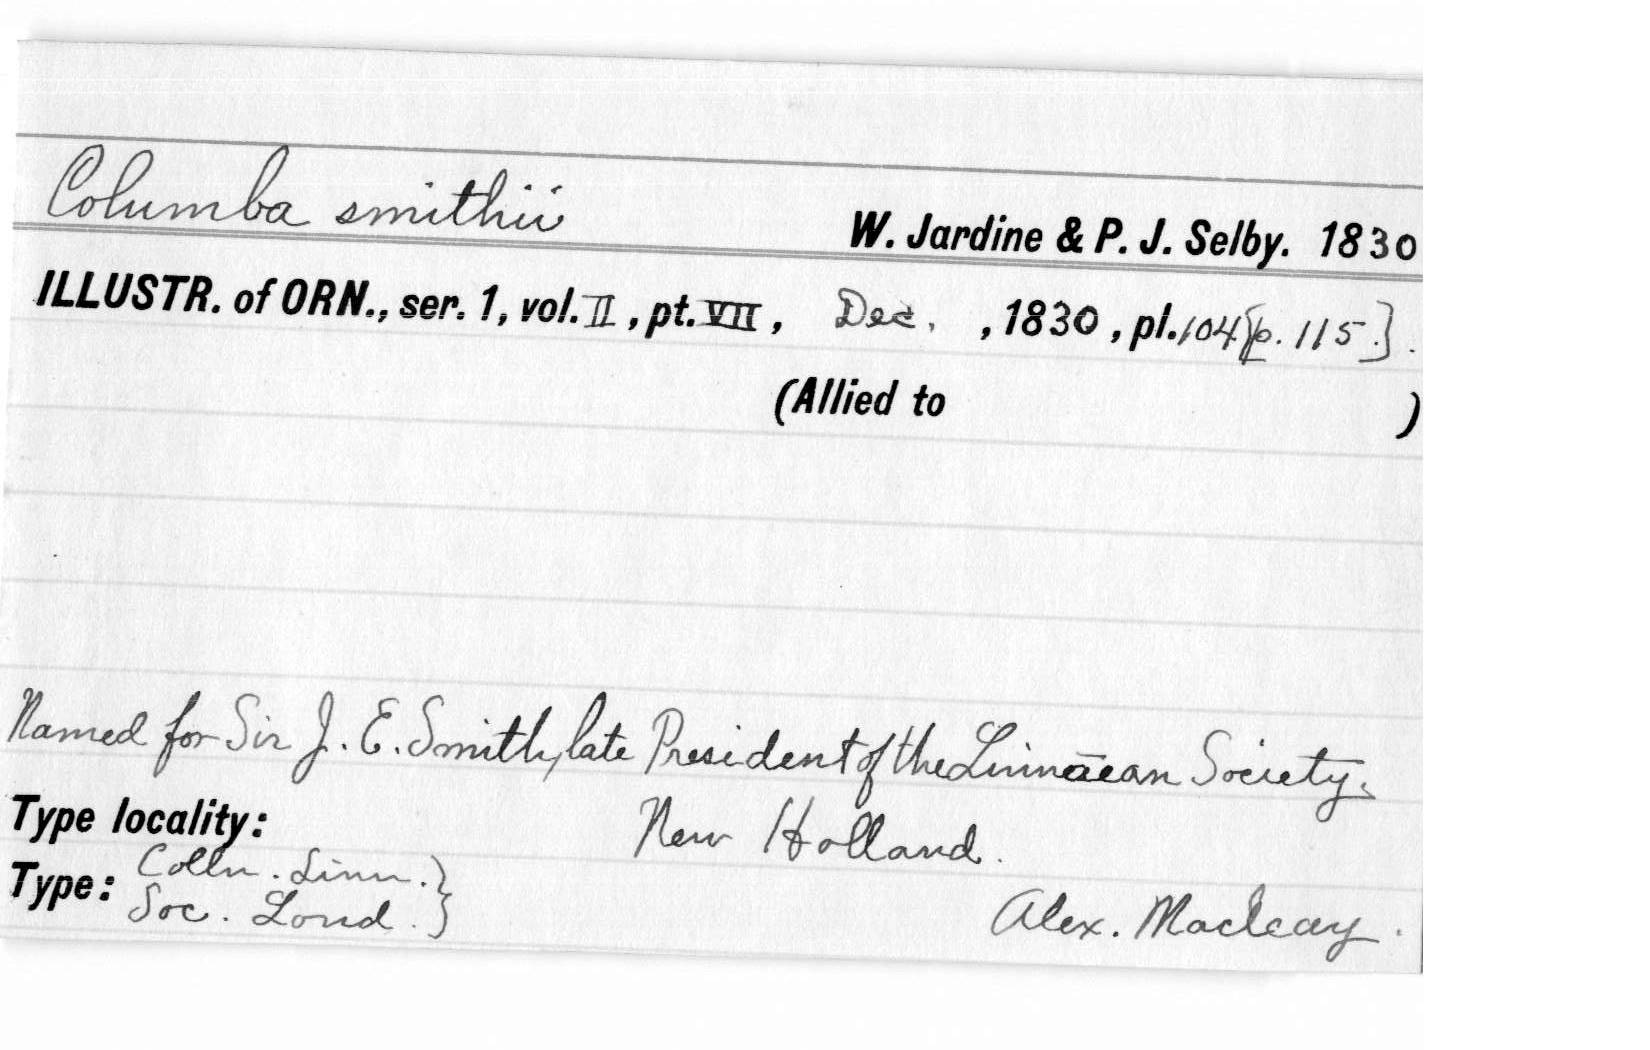 Columba smithii
W. Jardine & P. J. Selby. 1830
ILLUSTR. of ORN., ser. 1, vol. II, pt. VII, Dec., 1830, pl. 104 [p. 115.].
(Allied to )
Named for Sir J. E. Smith, late President of the Linnaean Society.
Type locality: New Holland.
Type: Colln. Linn. }
Soc. Lond. }
Alex. Macleay.